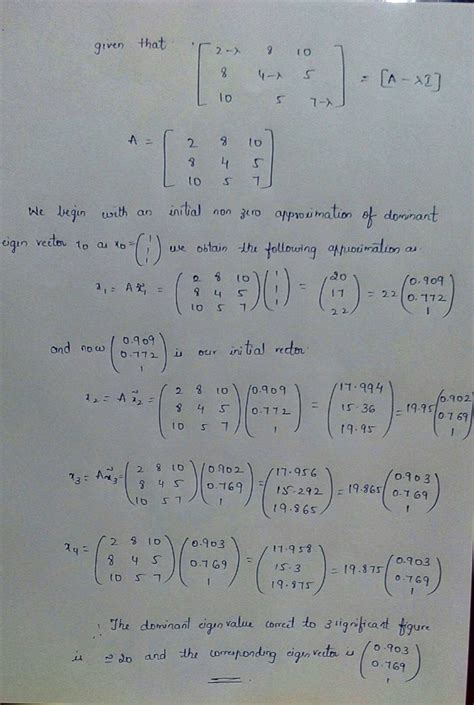 given that [ 2-λ 8 10
8 4-λ 5
10 5 7-λ ] = [A - λI]
A = [ 2 8 10
8 4 5
10 5 7 ]
We begin with an initial non zero approximation of dominant
eigen vector x0 as x0 = ( 1 1 1 ) we obtain the following approximation as
x1 = Ax̃1 = ( 2 8 10
8 4 5
10 5 7 ) ( 1
1
1 ) = ( 20
17
22 ) = 22 ( 0.909
0.772
1 )
and now ( 0.909
0.772
1 ) is our initial vector
x2 = Ax̃2 = ( 2 8 10
8 4 5
10 5 7 ) ( 0.909
0.772
1 ) = ( 17.994
15.36
19.95 ) = 19.95 ( 0.902
0.769
1 )
x3 = Ax̃3 = ( 2 8 10
8 4 5
10 5 7 ) ( 0.902
0.769
1 ) = ( 17.956
15.292
19.865 ) = 19.865 ( 0.903
0.769
1 )
x4 = ( 2 8 10
8 4 5
10 5 7 ) ( 0.903
0.769
1 ) = ( 17.958
15.3
19.875 ) = 19.875 ( 0.903
0.769
1 )
∴ The dominant eigen value correct to 3 significant figure
is ≃ 20 and the corresponding eigen vector is ( 0.903
0.769
1 )